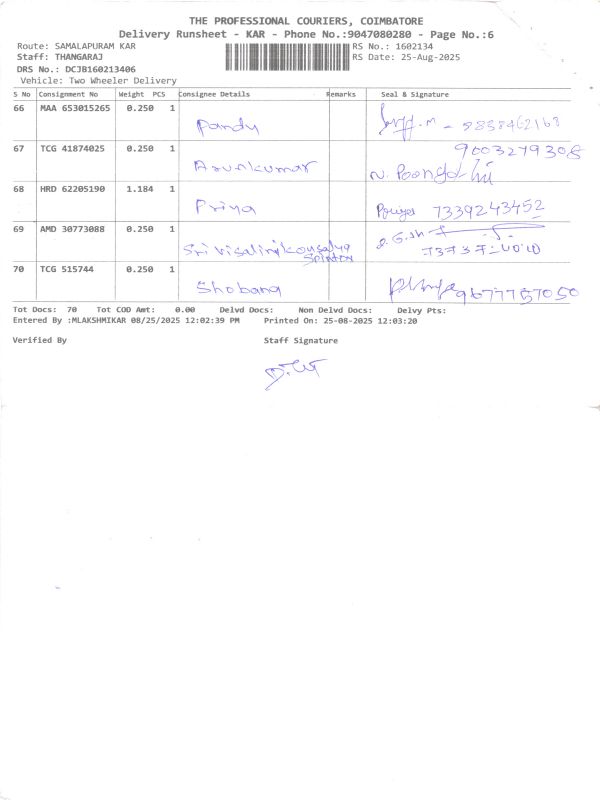 THE PROFESSIONAL COURIERS, COIMBATORE
Delivery Runsheet - KAR - Phone No.:9047080280 - Page No.:6
Route: SAMALAPURAM KAR RS No.: 1602134
Staff: THANGARAJ RS Date: 25-Aug-2025
DRS No.: DCJB160213406
Vehicle: Two Wheeler Delivery
S No Consignment No Weight PCS Consignee Details Remarks Seal & Signature
66 MAA 653015265 0.250 1
Pandy
67 TCG 41874025 0.250 1 9003279308
Arunkumar
68 HRD 62205190 1.184 1
Priya 7339243452
69 AMD 30773088 0.250 1
Sri visalini kousalya
70 TCG 515744 0.250 1
Shobana 9677757050
Tot Docs: 70 Tot COD Amt: 0.00 Delvd Docs: Non Delvd Docs: Delvy Pts:
Entered By :MLAKSHMIKAR 08/25/2025 12:02:39 PM Printed On: 25-08-2025 12:03:20
Verified By Staff Signature